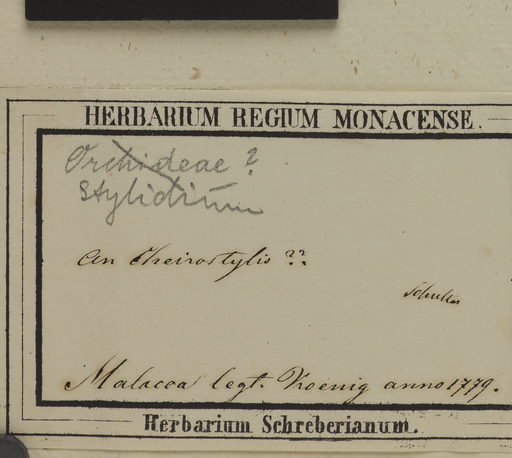 HERBARIUM REGIUM MONACENSE.
Orchideae ?
Stylidium
an Cheirostylis ??
Schultes
Malacca legt. Koenig anno 1779.
Herbarium Schreberianum.